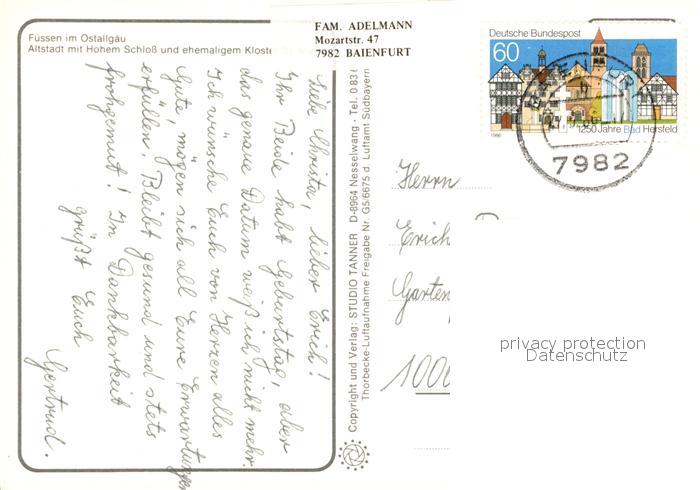 Füssen im Ostallgäu
Altstadt mit Hohem Schloß und ehemaligem Kloste
FAM. ADELMANN
Mozartstr. 47
7982 BAIENFURT
Deutsche Bundespost
60
1250 Jahre Bad Hersfeld
1986
7982
Liebe Christa, lieber Erich!
Ihr Beide habt Geburtstag, aber
das genaue Datum weiß ich nicht mehr.
Ich wünsche Euch von Herzen alles
Gute, mögen sich all Eure Erwartungen
erfüllen. Bleibt gesund und stets
frohgemut! In Dankbarkeit
grüßt Euch
Gertrud.
Copyright und Verlag: STUDIO TANNER D-8964 Nesselwang · Tel. 0 83
Thorbecke-Luftaufnahme Freigabe Nr. G5/6675 d Luftamt Südbayern
Herrn
Erich
Garten
1000
privacy protection
Datenschutz